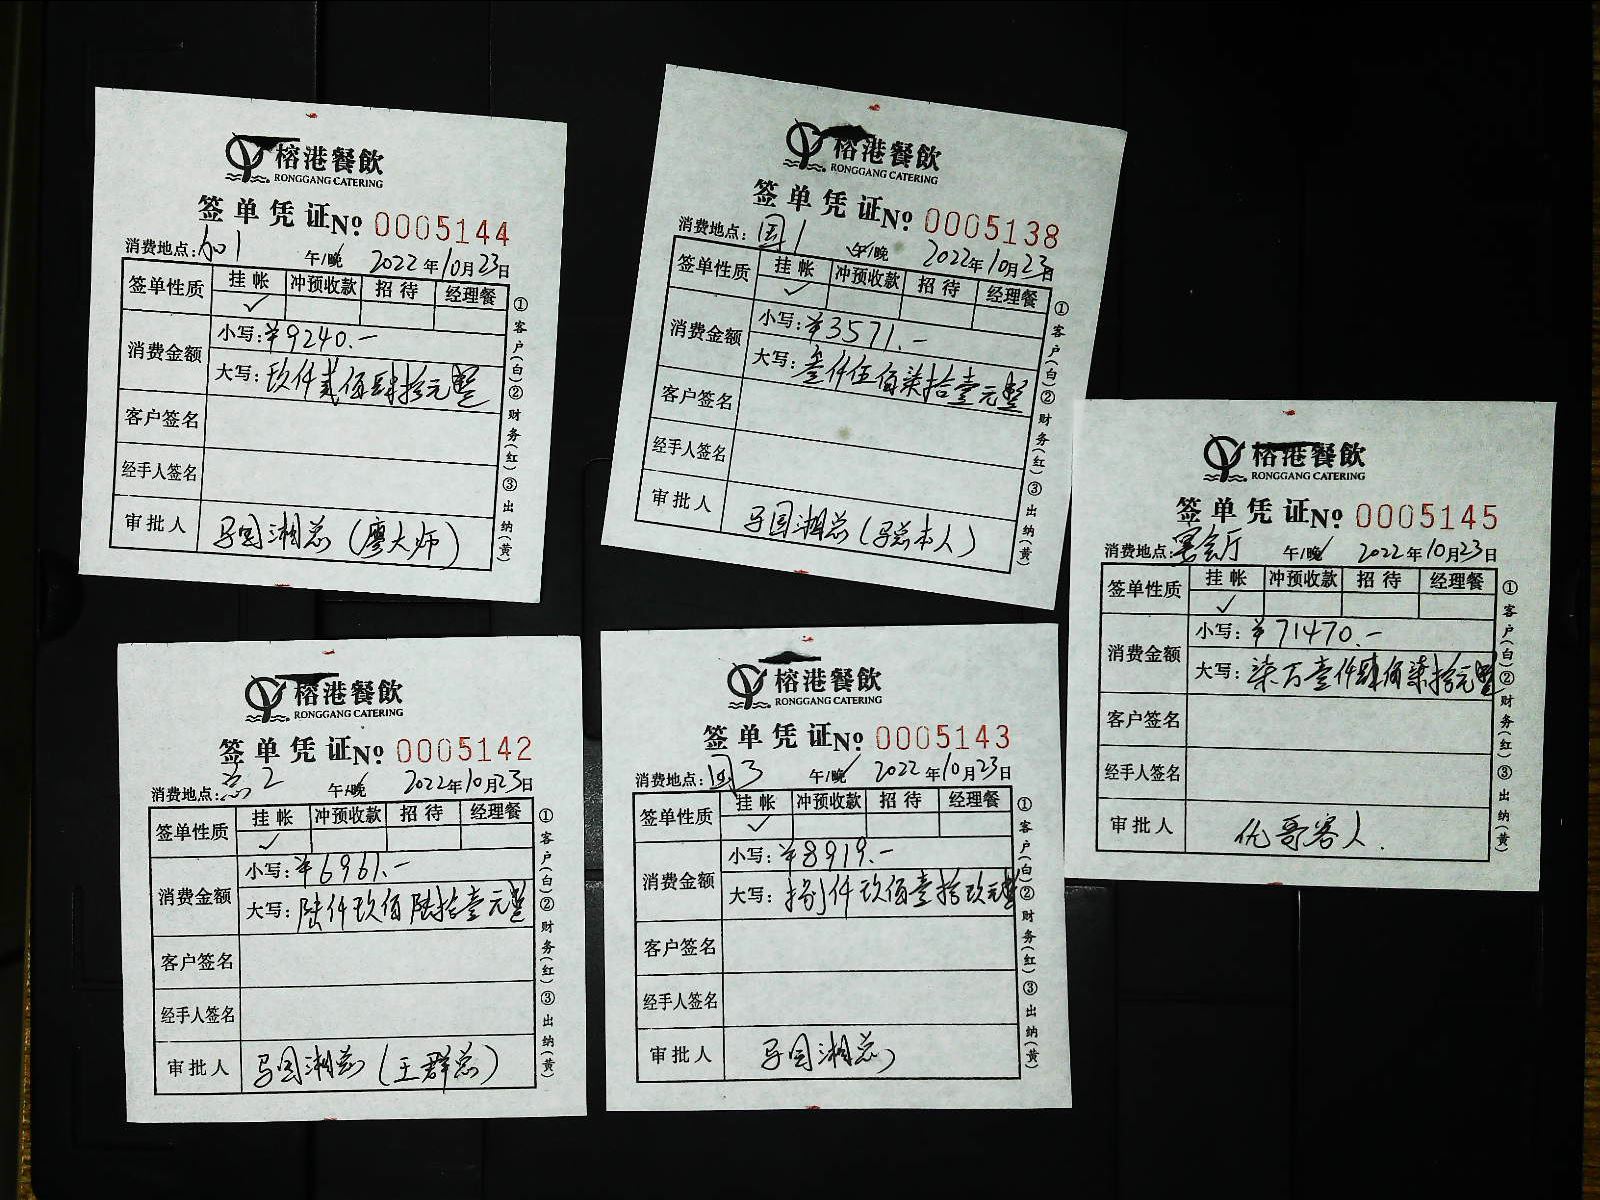 榕港餐飲
RONGGANG CATERING
签单凭证 № 0005144
消费地点: 午/晚 2022年10月23日
签单性质 挂帐 冲预收款 招待 经理餐
✓
消费金额 小写:¥9240.-
大写:玖仟贰佰肆拾元整
客户签名
经手人签名
审批人 马国湘总(廖大师)
①客户(白)②财务(红)③出纳(黄)
榕港餐飲
RONGGANG CATERING
签单凭证 № 0005138
消费地点:国1 午/晚 2022年10月23日
签单性质 挂帐 冲预收款 招待 经理餐
✓
消费金额 小写:¥3571.-
大写:叁仟伍佰柒拾壹元整
客户签名
经手人签名
审批人 马国湘总(马总本人)
①客户(白)②财务(红)③出纳(黄)
榕港餐飲
RONGGANG CATERING
签单凭证 № 0005145
消费地点:宴会厅 午/晚 2022年10月23日
签单性质 挂帐 冲预收款 招待 经理餐
✓
消费金额 小写:¥71470.-
大写:柒万壹仟肆佰柒拾元整
客户签名
经手人签名
审批人 优哥客人.
①客户(白)②财务(红)③出纳(黄)
榕港餐飲
RONGGANG CATERING
签单凭证 № 0005142
消费地点:总2 午/晚 2022年10月23日
签单性质 挂帐 冲预收款 招待 经理餐
✓
消费金额 小写:¥6961.-
大写:陆仟玖佰陆拾壹元整
客户签名
经手人签名
审批人 马国湘总(王群总)
①客户(白)②财务(红)③出纳(黄)
榕港餐飲
RONGGANG CATERING
签单凭证 № 0005143
消费地点:国3 午/晚 2022年10月23日
签单性质 挂帐 冲预收款 招待 经理餐
✓
消费金额 小写:¥8919.-
大写:捌仟玖佰壹拾玖元整
客户签名
经手人签名
审批人 马国湘总
①客户(白)②财务(红)③出纳(黄)